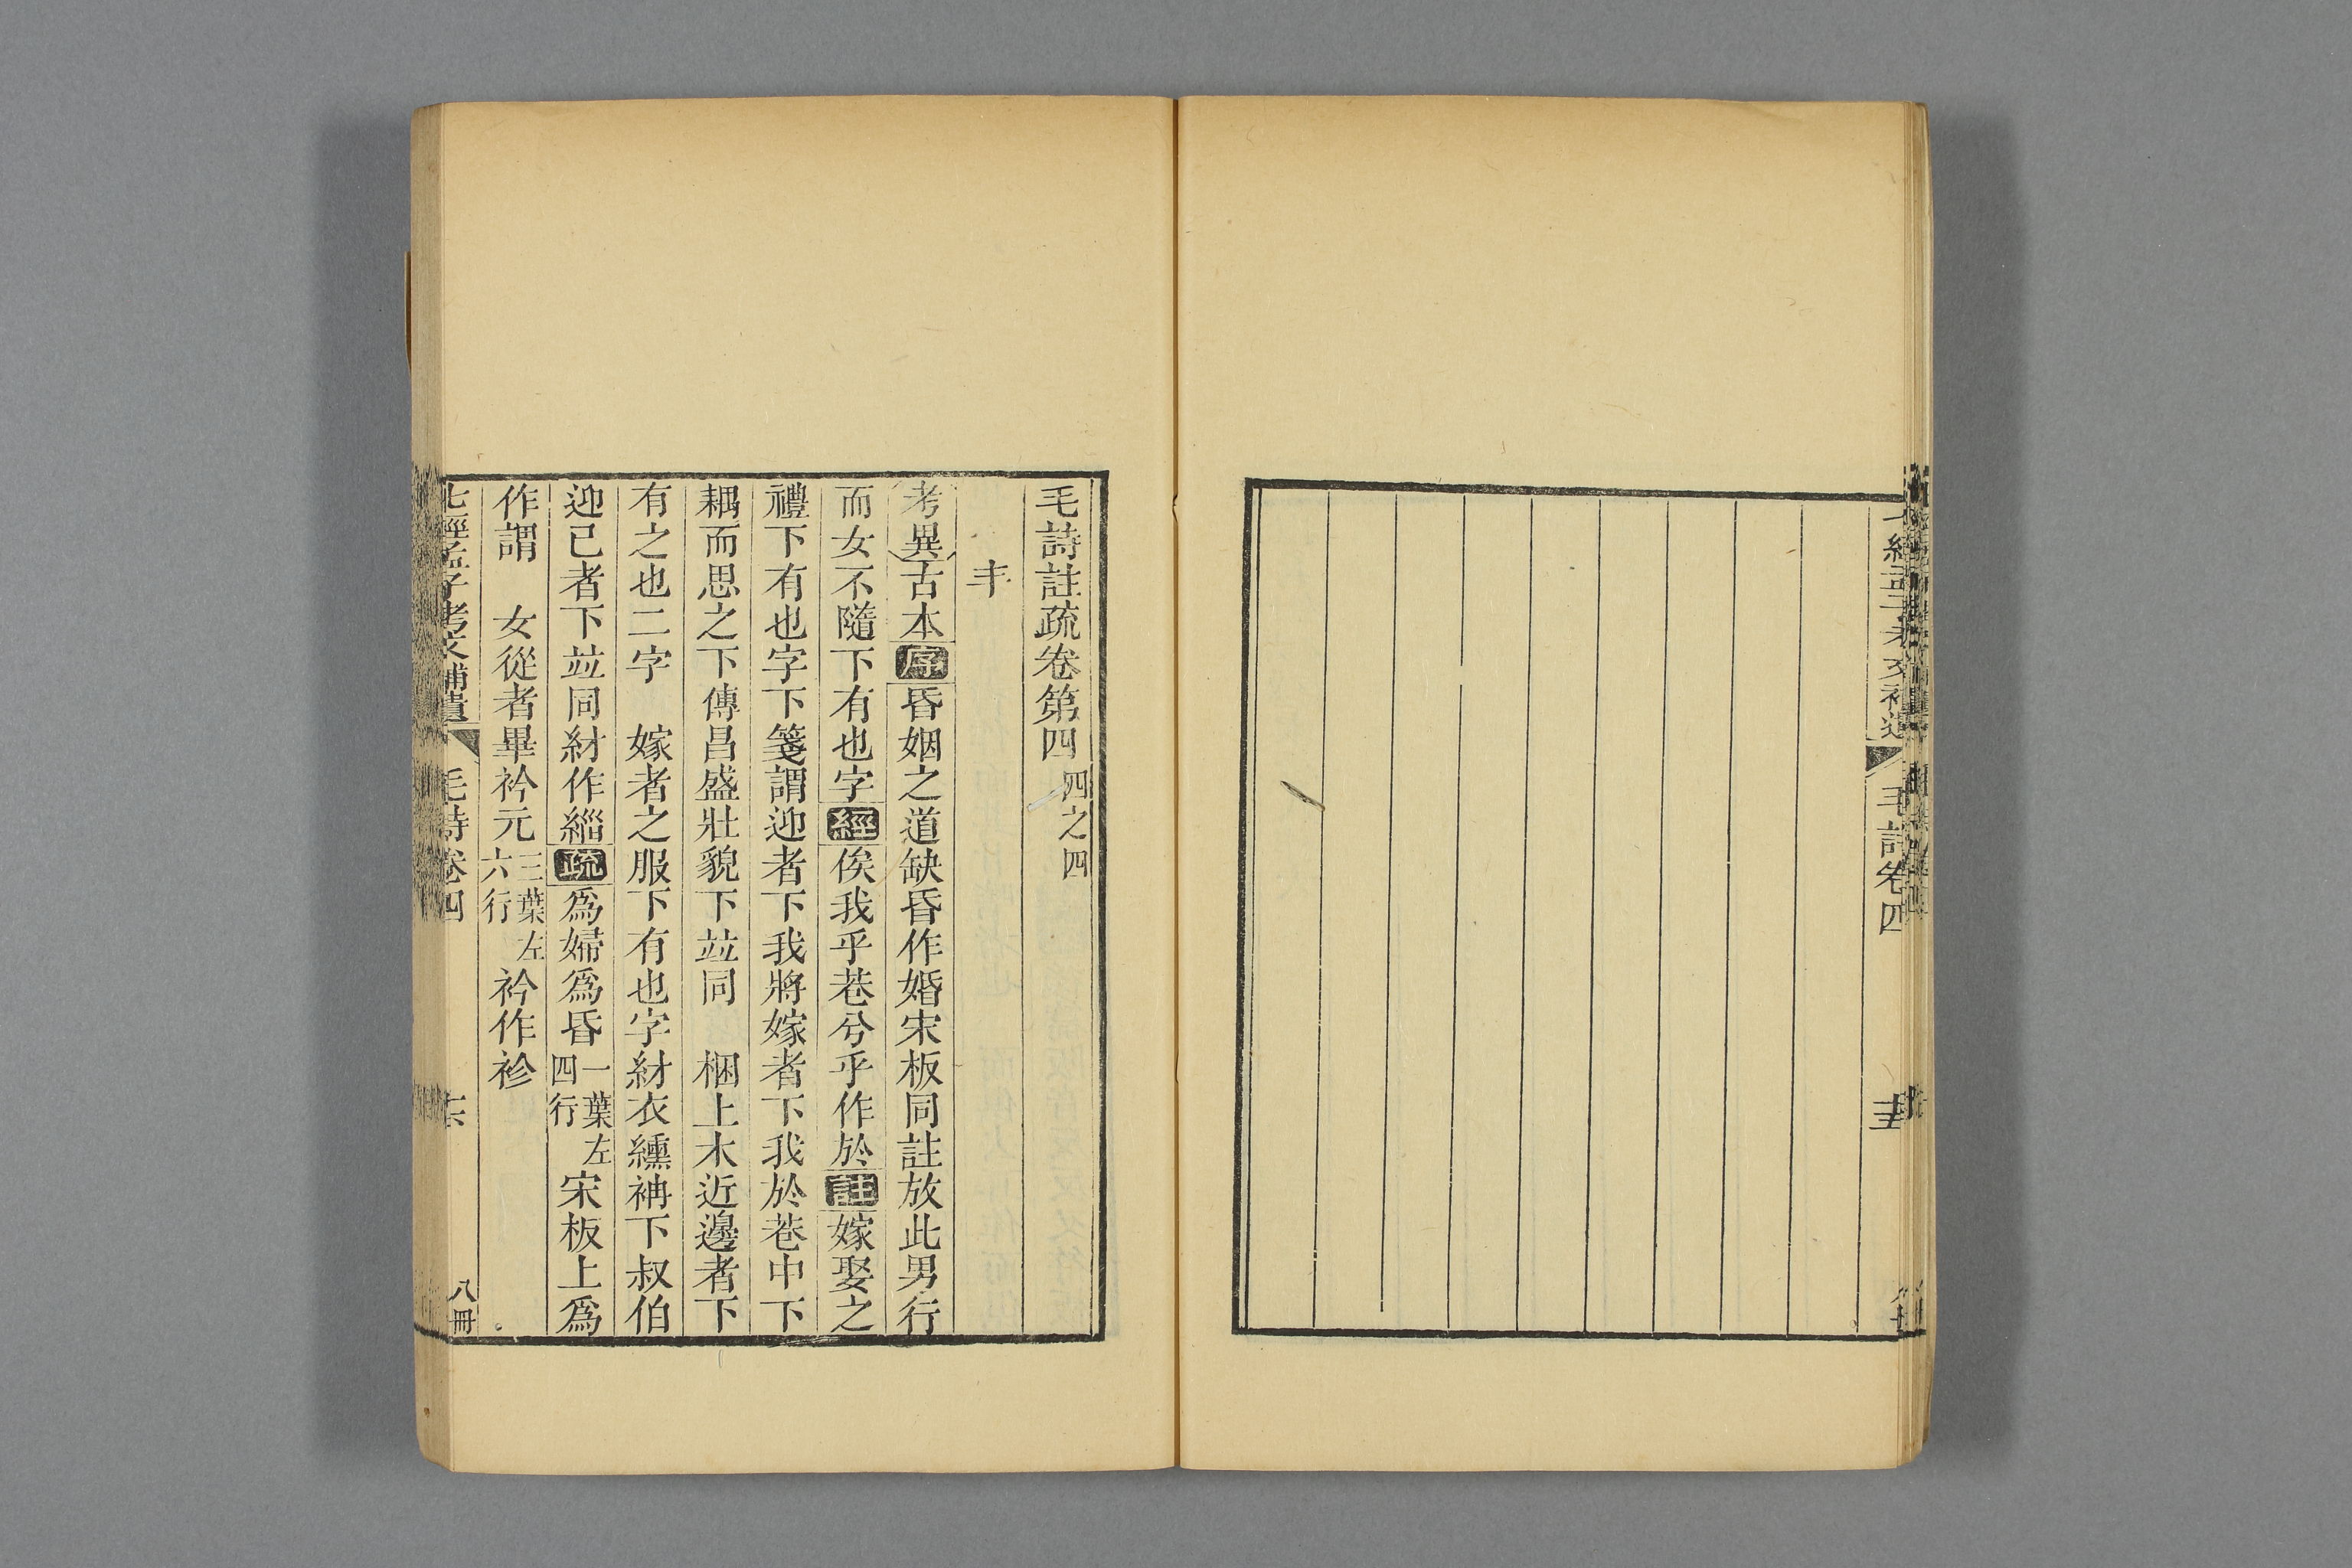 毛詩註疏卷第四 四之四
丰
考異古本序昏姻之道缺昏作婚宋板同註放此男行
而女不隨下有也字經俟我乎巷兮乎作於註嫁娶之
禮下有也字下箋謂迎者下我將嫁者下我於巷中下
耦而思之下傳昌盛壯貌下竝同 梱上木近邊者下
有之也二字 嫁者之服下有也字紂衣纁袡下叔伯
迎己者下竝同紂作緇疏爲婦爲昏一葉左四行宋板上爲
作謂 女從者畢袗元三葉左六行衿作袗
七經孟子考文補遺 毛詩卷四 八冊
毛詩卷四